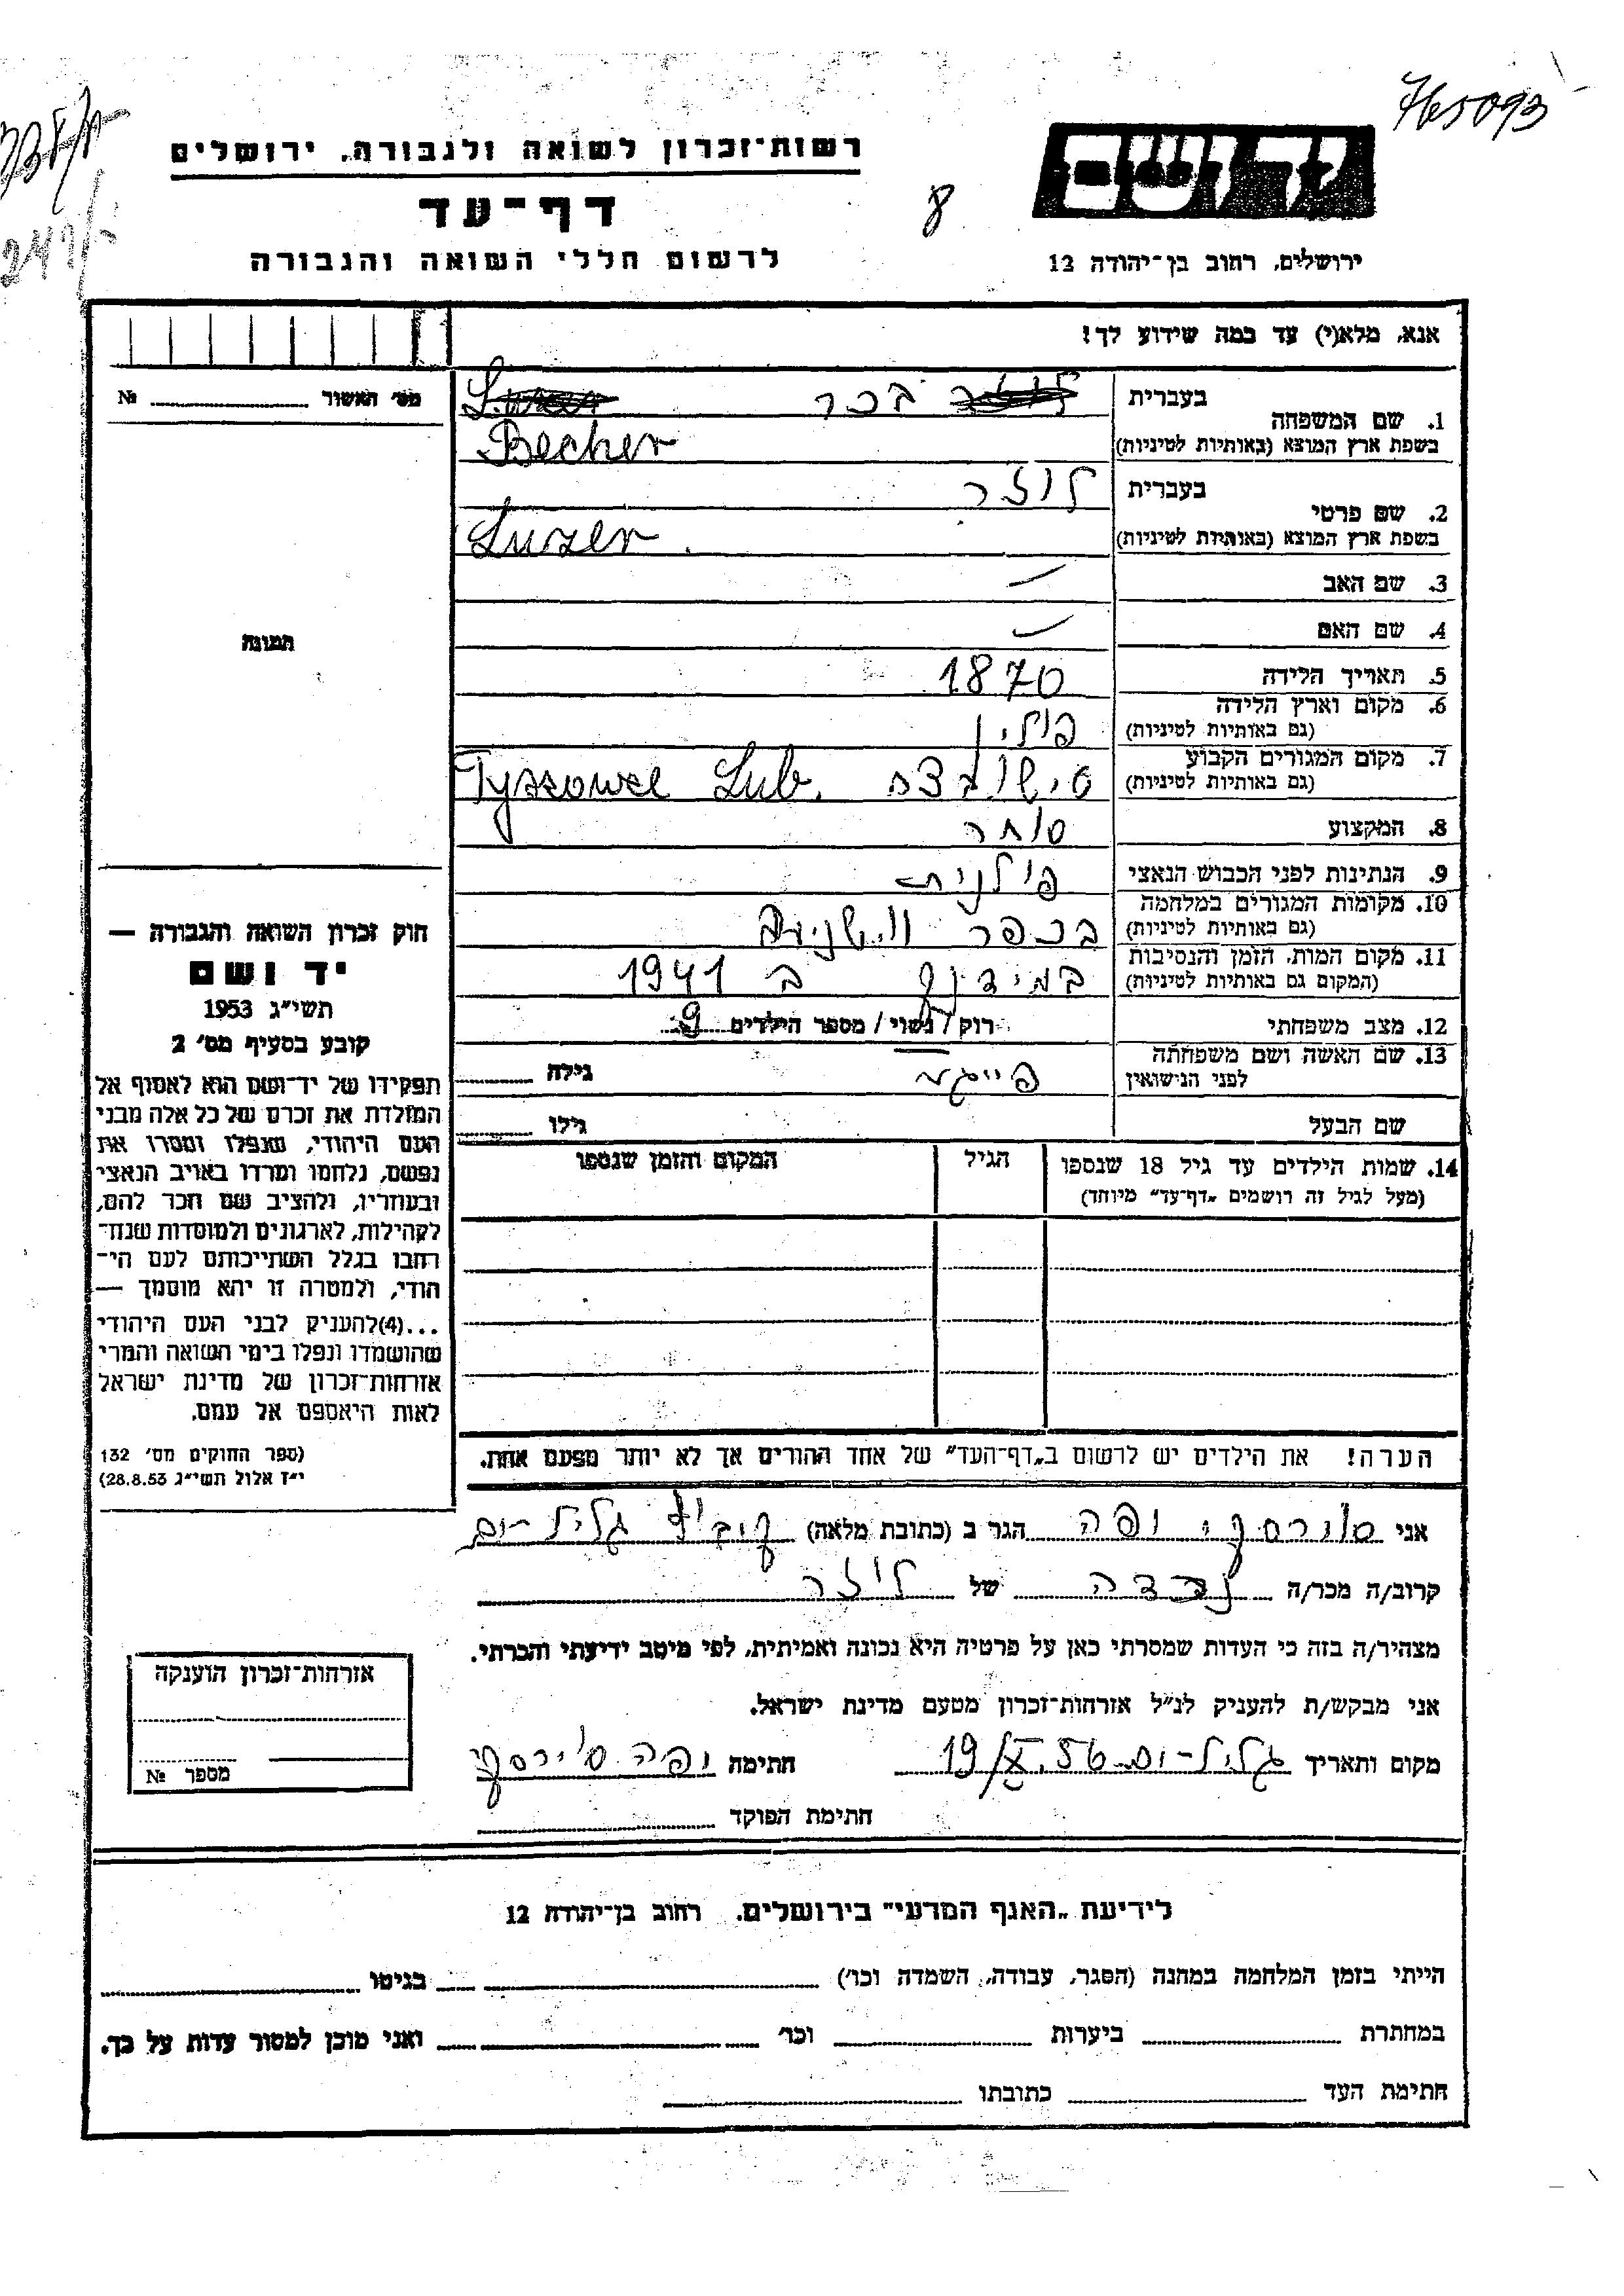 765093
רשות־זכרון לשואה ולגבורה, ירושלים
דף־עד
לרשום חללי השואה והגבורה
8
ירושלים, רחוב בן־יהודה 12
אנא, מלא(י) עד כמה שידוע לך!
מס׳ האשור № 
בעברית בכר
1. שם המשפחה
בשפת ארץ המוצא (באותיות לטיניות) Becher
בעברית לוזר
2. שם פרטי
בשפת ארץ המוצא (באותיות לטיניות) Luzer
3. שם האב —
4. שם האם —
5. תאריך הלידה 1870
6. מקום וארץ הלידה
(גם באותיות לטיניות) פולין
7. מקום המגורים הקבוע
(גם באותיות לטיניות) טישובצה Tyszowce Lub.
8. המקצוע סוחר
9. הנתינות לפני הכבוש הנאצי פולנית
10. מקומות המגורים במלחמה
(גם באותיות לטיניות) בכפר
11. מקום המות, הזמן והנסיבות
(המקום גם באותיות לטיניות) ב 1941
12. מצב משפחתי רוק / נשוי / מספר הילדים 9
13. שם האשה ושם משפחתה
לפני הנישואין פייגה גילה
שם הבעל גילו
14. שמות הילדים עד גיל 18 שנספו הגיל המקום והזמן שנספו
(מעל לגיל זה רושמים „דף־עד״ מיוחד)
הערה! את הילדים יש לרשום ב„דף־העד״ של אחד ההורים אך לא יותר מפעם אחת.
תמונה
חוק זכרון השואה והגבורה —
יד ושם
תשי״ג 1953
קובע בסעיף מס׳ 2
תפקידו של יד־ושם הוא לאסוף אל
המולדת את זכרם של כל אלה מבני
העם היהודי, שנפלו ומסרו את
נפשם, נלחמו ומרדו באויב הנאצי
ובעוזריו, ולהציב שם וזכר להם,
לקהילות, לארגונים ולמוסדות שנח־
רחבו בגלל השתייכותם לעם הי־
הודי, ולמטרה זו יהא מוסמך —
...(4)להעניק לבני העם היהודי
שהושמדו ונפלו בימי השואה והמרי
אזרחות־זכרון של מדינת ישראל
לאות היאספם אל עמם.
(ספר החוקים מס׳ 132
י״ז אלול תשי״ג 28.8.53)
אני יפה הגר ב (כתובת מלאה) קיבוץ גליל־ים
קרוב/ה מכר/ה נכדה של לוזר
מצהיר/ה בזה כי העדות שמסרתי כאן על פרטיה היא נכונה ואמיתית, לפי מיטב ידיעתי והכרתי.
אני מבקש/ת להעניק לנ״ל אזרחות־זכרון מטעם מדינת ישראל.
מקום ותאריך גליל־ים 19/X.56 חתימה יפה
חתימת הפוקד
אזרחות־זכרון הוענקה
מספר №
לידיעת „האגף המדעי״ בירושלים, רחוב בן־יהודה 12
הייתי בזמן המלחמה במחנה (הסגר, עבודה, השמדה וכו׳) בגיטו
במחתרת ביערות וכו׳ ואני מוכן למסור עדות על כך.
חתימת העד כתובתו